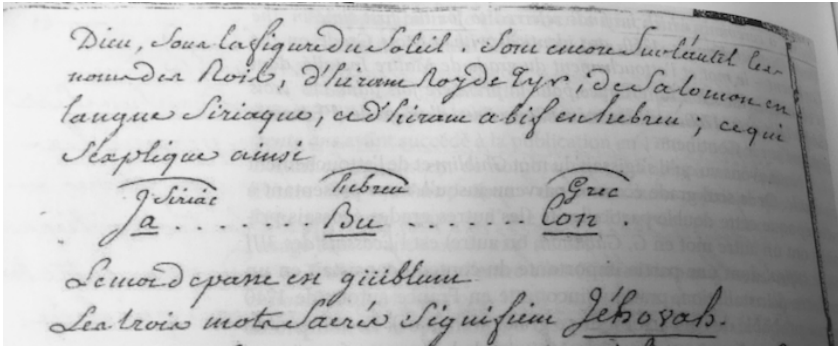 Dieu, Sous la figure du Soleil. Sont encore Sur l'autel les
noms des Rois, d'hiram Roy de Tyr, de Salomon en
langue Siriaque, et d'hiram abif en hebreu; ce qui
S'explique ainsi
Siriac hebreu Grec
Ja........ Bu....... Lon.
Le mot de passe est guiblum
Les trois mots Sacrés Signifient Jéhovah.